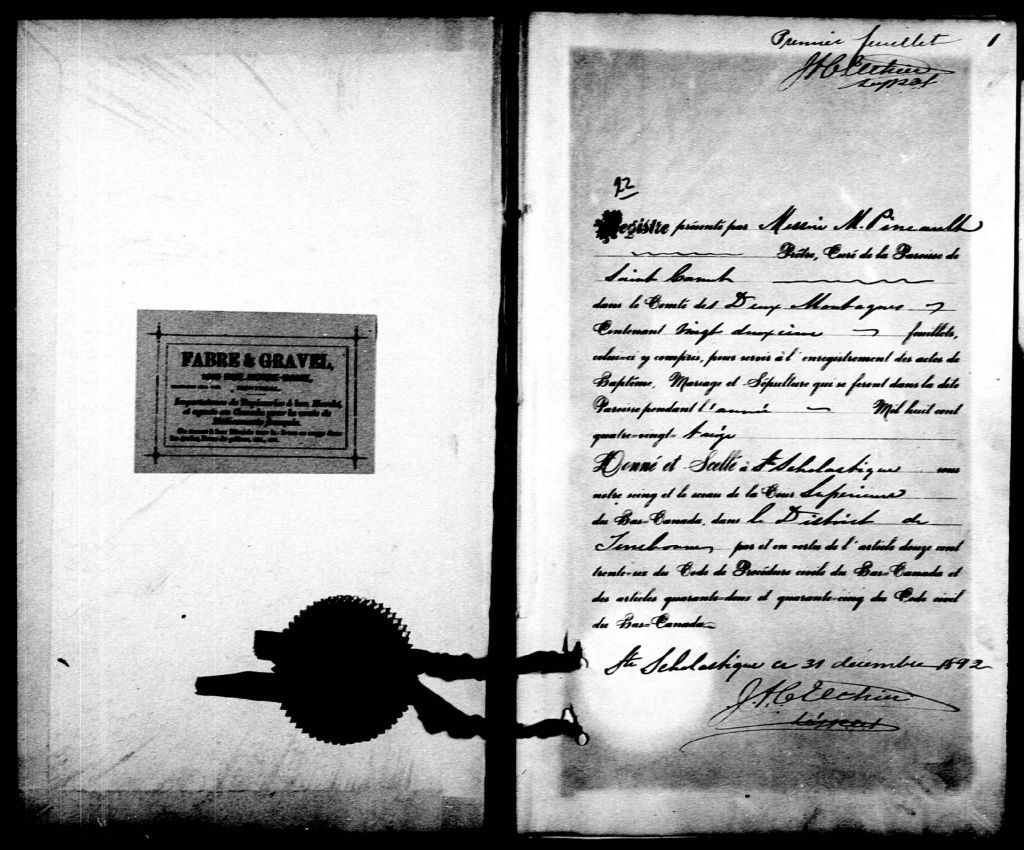 FABRE & GRAVEL,
Importateurs de
et agents au Canada pour la vente de
Premier feuillet 1
92
Registre présenté par Messire M. Pineault
Prêtre, Curé de la Paroisse de
Saint Canut
dans le Comté des Deux Montagnes
Contenant Vingt deuxieme feuillets,
celui-ci y compris, pour servir à l'enregistrement des actes de
Baptême, Mariage et Sépulture qui se feront dans la dite
Paroisse pendant l'année Mil huit cent
quatre-vingt treize
Donné et Scellé à Ste Scholastique sous
notre seing et le sceau de la Cour Superieure
du Bas-Canada, dans le District de
Terrebonne, par et en vertu de l'article douze cent
trente-six du Code de Procédure civile du Bas-Canada et
des articles quarante-deux et quarante-cinq du Code civil
du Bas-Canada
Ste Scholastique ce 31 decembre 1892